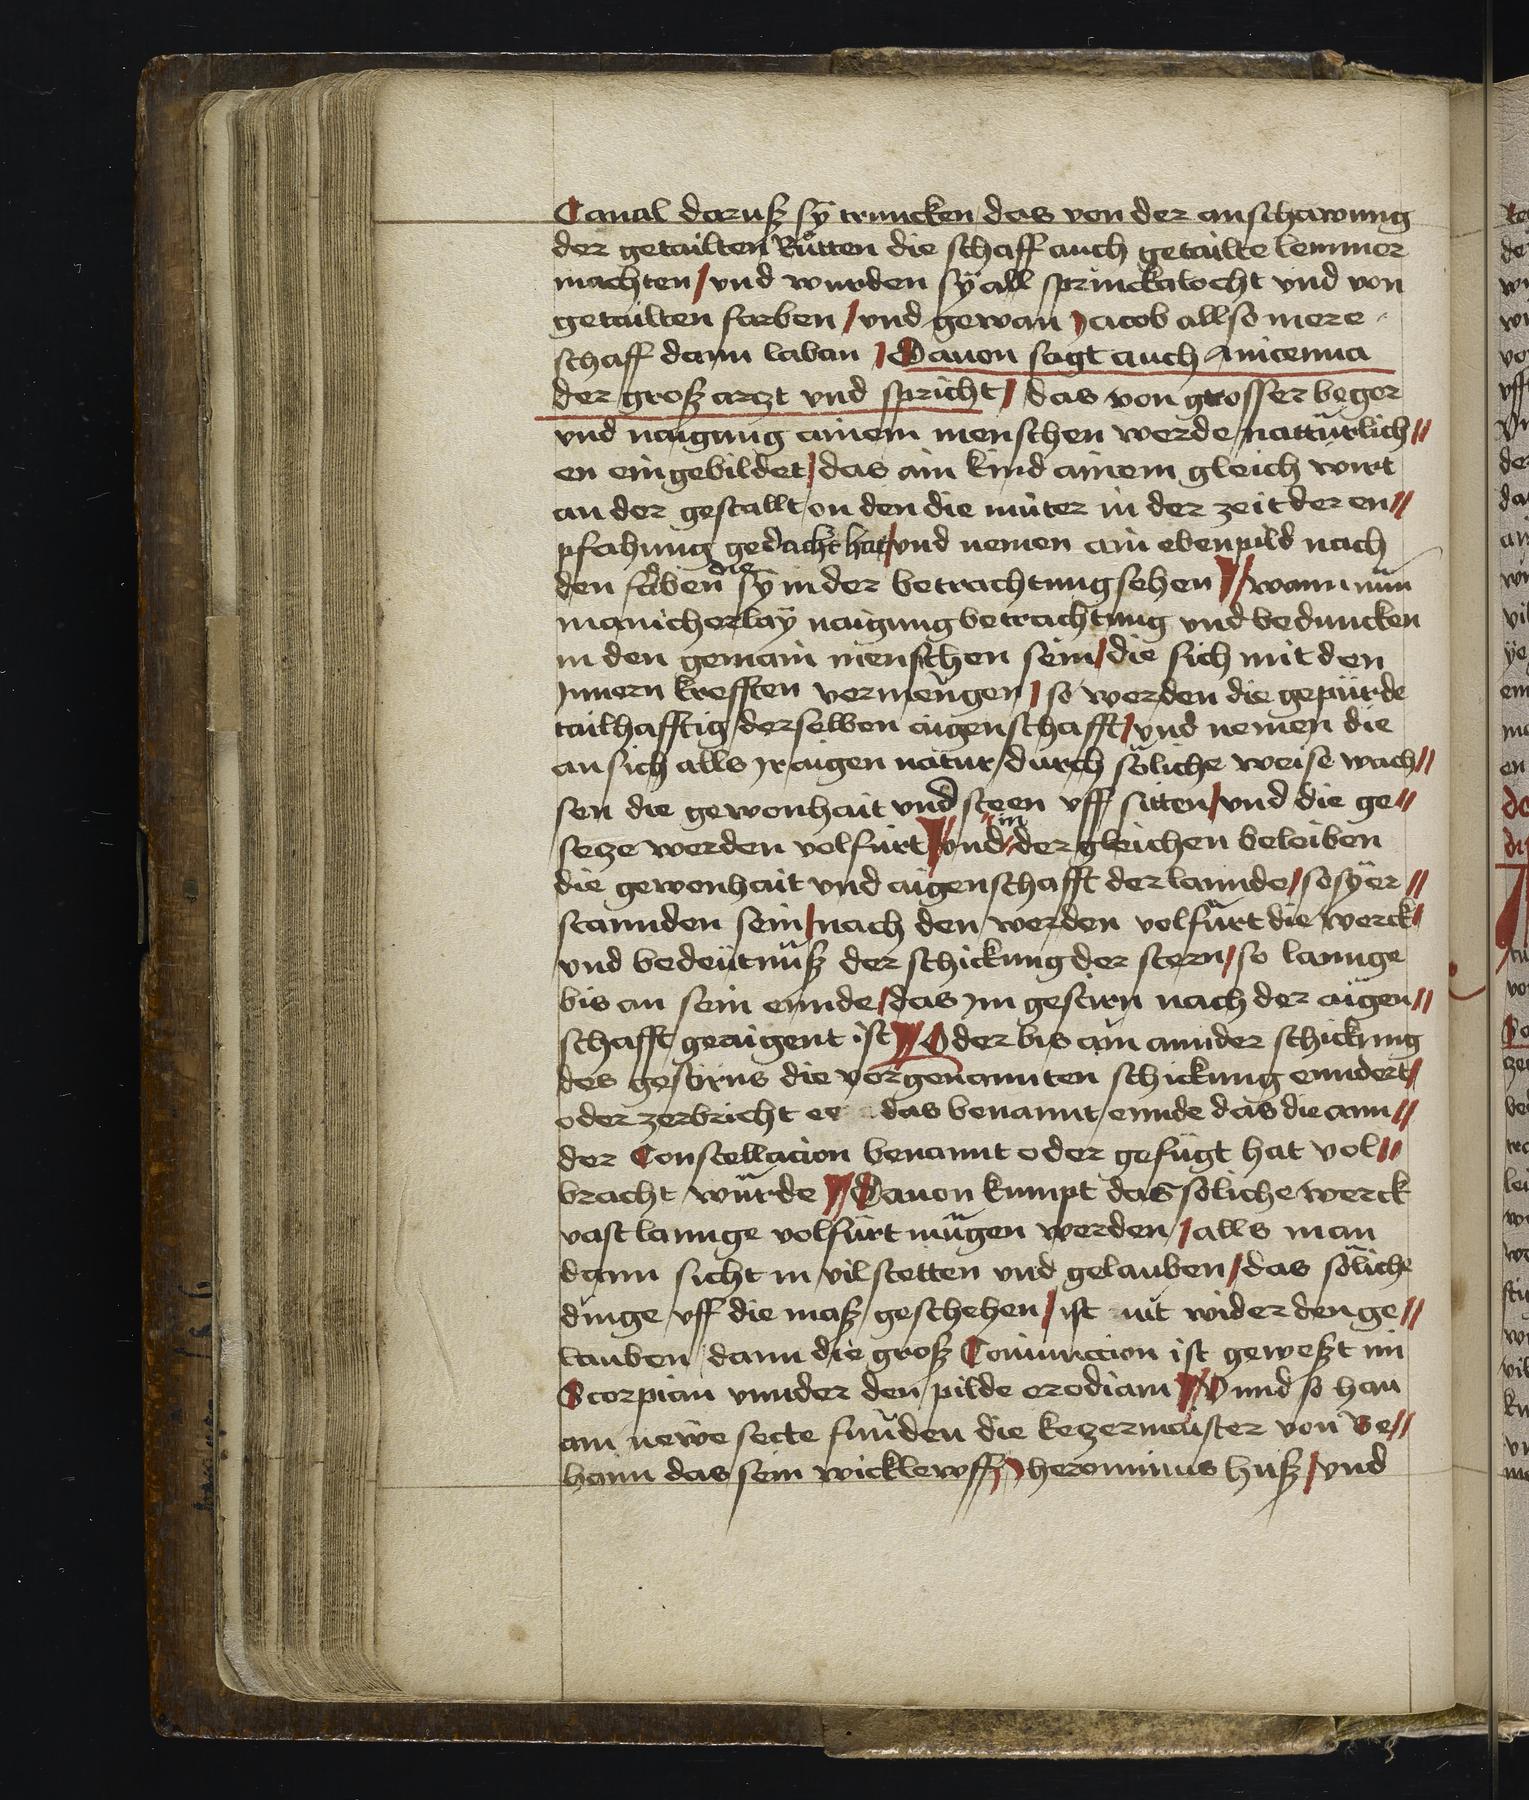 Canal daruß sÿ truncken das von der anschawung
der getailten Růtten die schaff auch getailte lemmer
machten / vnd wurden sÿ all sprincklocht vnd von
getailten farben / vnd gewan Jacob allso mere
schaff dann laban / Dauon sagt auch Auicenna
der groß arczt vnd spricht / das von grosser beger
vnd naigung ainem menschen werde natürlich//
en eingebildet / das ain kind ainem gleich wirt
an der gestallt on den die můter in der zeit der en//
pfahung gedacht hat / vnd nemen ain ebenpild nach
den farben die sÿ in der betrachtung sehen // wann nün
manicherlaÿ naigung betrachtung vnd beduncken
in den gemain menschen sein / die sich mit den
Jnnern krefften vermengen / so werden die gepürde
tailhafftig derselben aigenschafft / vnd nemen die
an sich alls Jr aigen natur durch söliche weise wach//
sen die gewonhait vnd steen vff sitten / vnd die ge//
secze werden volfürt // vnd in der gleichen beleiben
die gewonhait vnd aigenschafft der lannde / so sÿ er//
stannden sein / nach den werden volfürt die werck/
vnd bedeütnüß der schickung der stern / so lannge
bis an sein ennde / das Jm gestirn nach der aigen//
schafft geaigent ist // Oder bis ain annder schickung
des gestirns die vorgenannten schickung enndert/
oder zerbricht ee das benannt ennde das die ann//
der Constellacion benannt oder gefügt hat vol//
bracht würde // Dauon kumpt das söliche werck
vast lannge volfürt mügen werden / alls man
dann sicht in vil stetten vnd gelauben / das söliche
dinge vff die maß geschehen / ist nit wider den ge//
lauben dann die groß Coniunccion ist geweßt im
Scorpian vnnder den pilde erodiam // Vnnd so han
ain newe secte funden die keczermaister von Be//
haim das sein wicklewff / Jheronimus huß / vnd